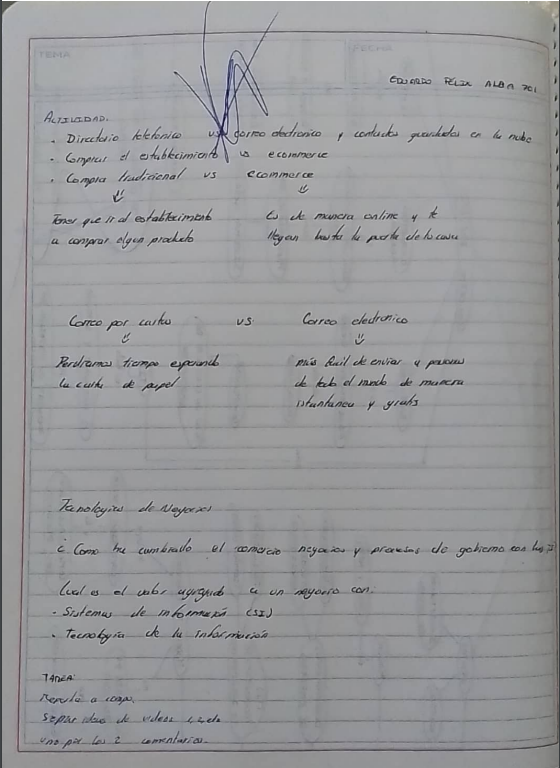 TEMA
FECHA
EDUARDO FÉLIX ALBA 701
ACTIVIDAD.
· Directorio telefonico vs correo electronico y contactos guardados en la nube
· Comprar el establecimiento vs ecommerce
· Compra tradicional vs ecommerce
Tener que ir al establecimiento
a comprar algun producto
Es de manera online y te
llegan hasta la puerta de la casa
Correo por cartas vs Correo electronico
Perdramos tiempo esperando
la carta de papel
más facil de enviar a personas
de todo el mundo de manera
istantanea y gratis
Tecnologias de Negocios
¿ Como ha cambiado el comercio negocios y procesos de gobierno con las
Cual es el valor agregado a un negocio con:
· Sistemas de información (SI)
· Tecnología de la información
TAREA:
de videos
uno por los 2 comentarios.